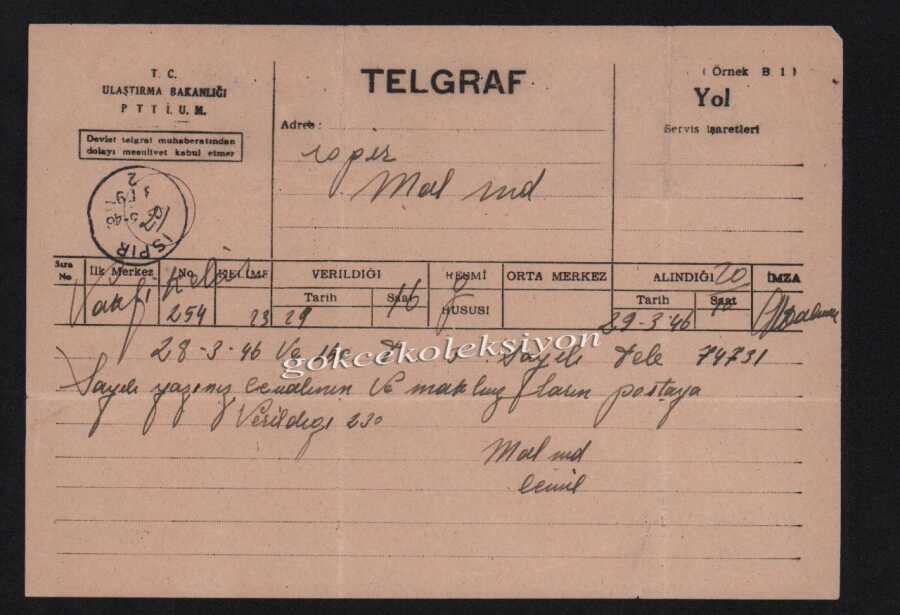 T. C.
ULAŞTIRMA BAKANLIĞI
P T T İ. U. M.
Devlet telgraf muhaberatından
dolayı mesuliyet kabul etmez
TELGRAF
Adres :
ispir
Mal md
( Örnek B 1 )
Yol
Servis işaretleri
İSPİR
Sıra No
İlk Merkez
No.
KELİME
VERİLDİĞİ
Tarih
Saat
RESMİ
HUSUSİ
ORTA MERKEZ
ALINDIĞI
Tarih
Saat
İMZA
254
23
29
16
20
29-3-46
28-3-46 Ve
Sayılı tele 74731
gokcekoleksiyon
Sayılı yazınız cevabının Ve makbuzların postaya
Verildiği
Mal md
Cemil